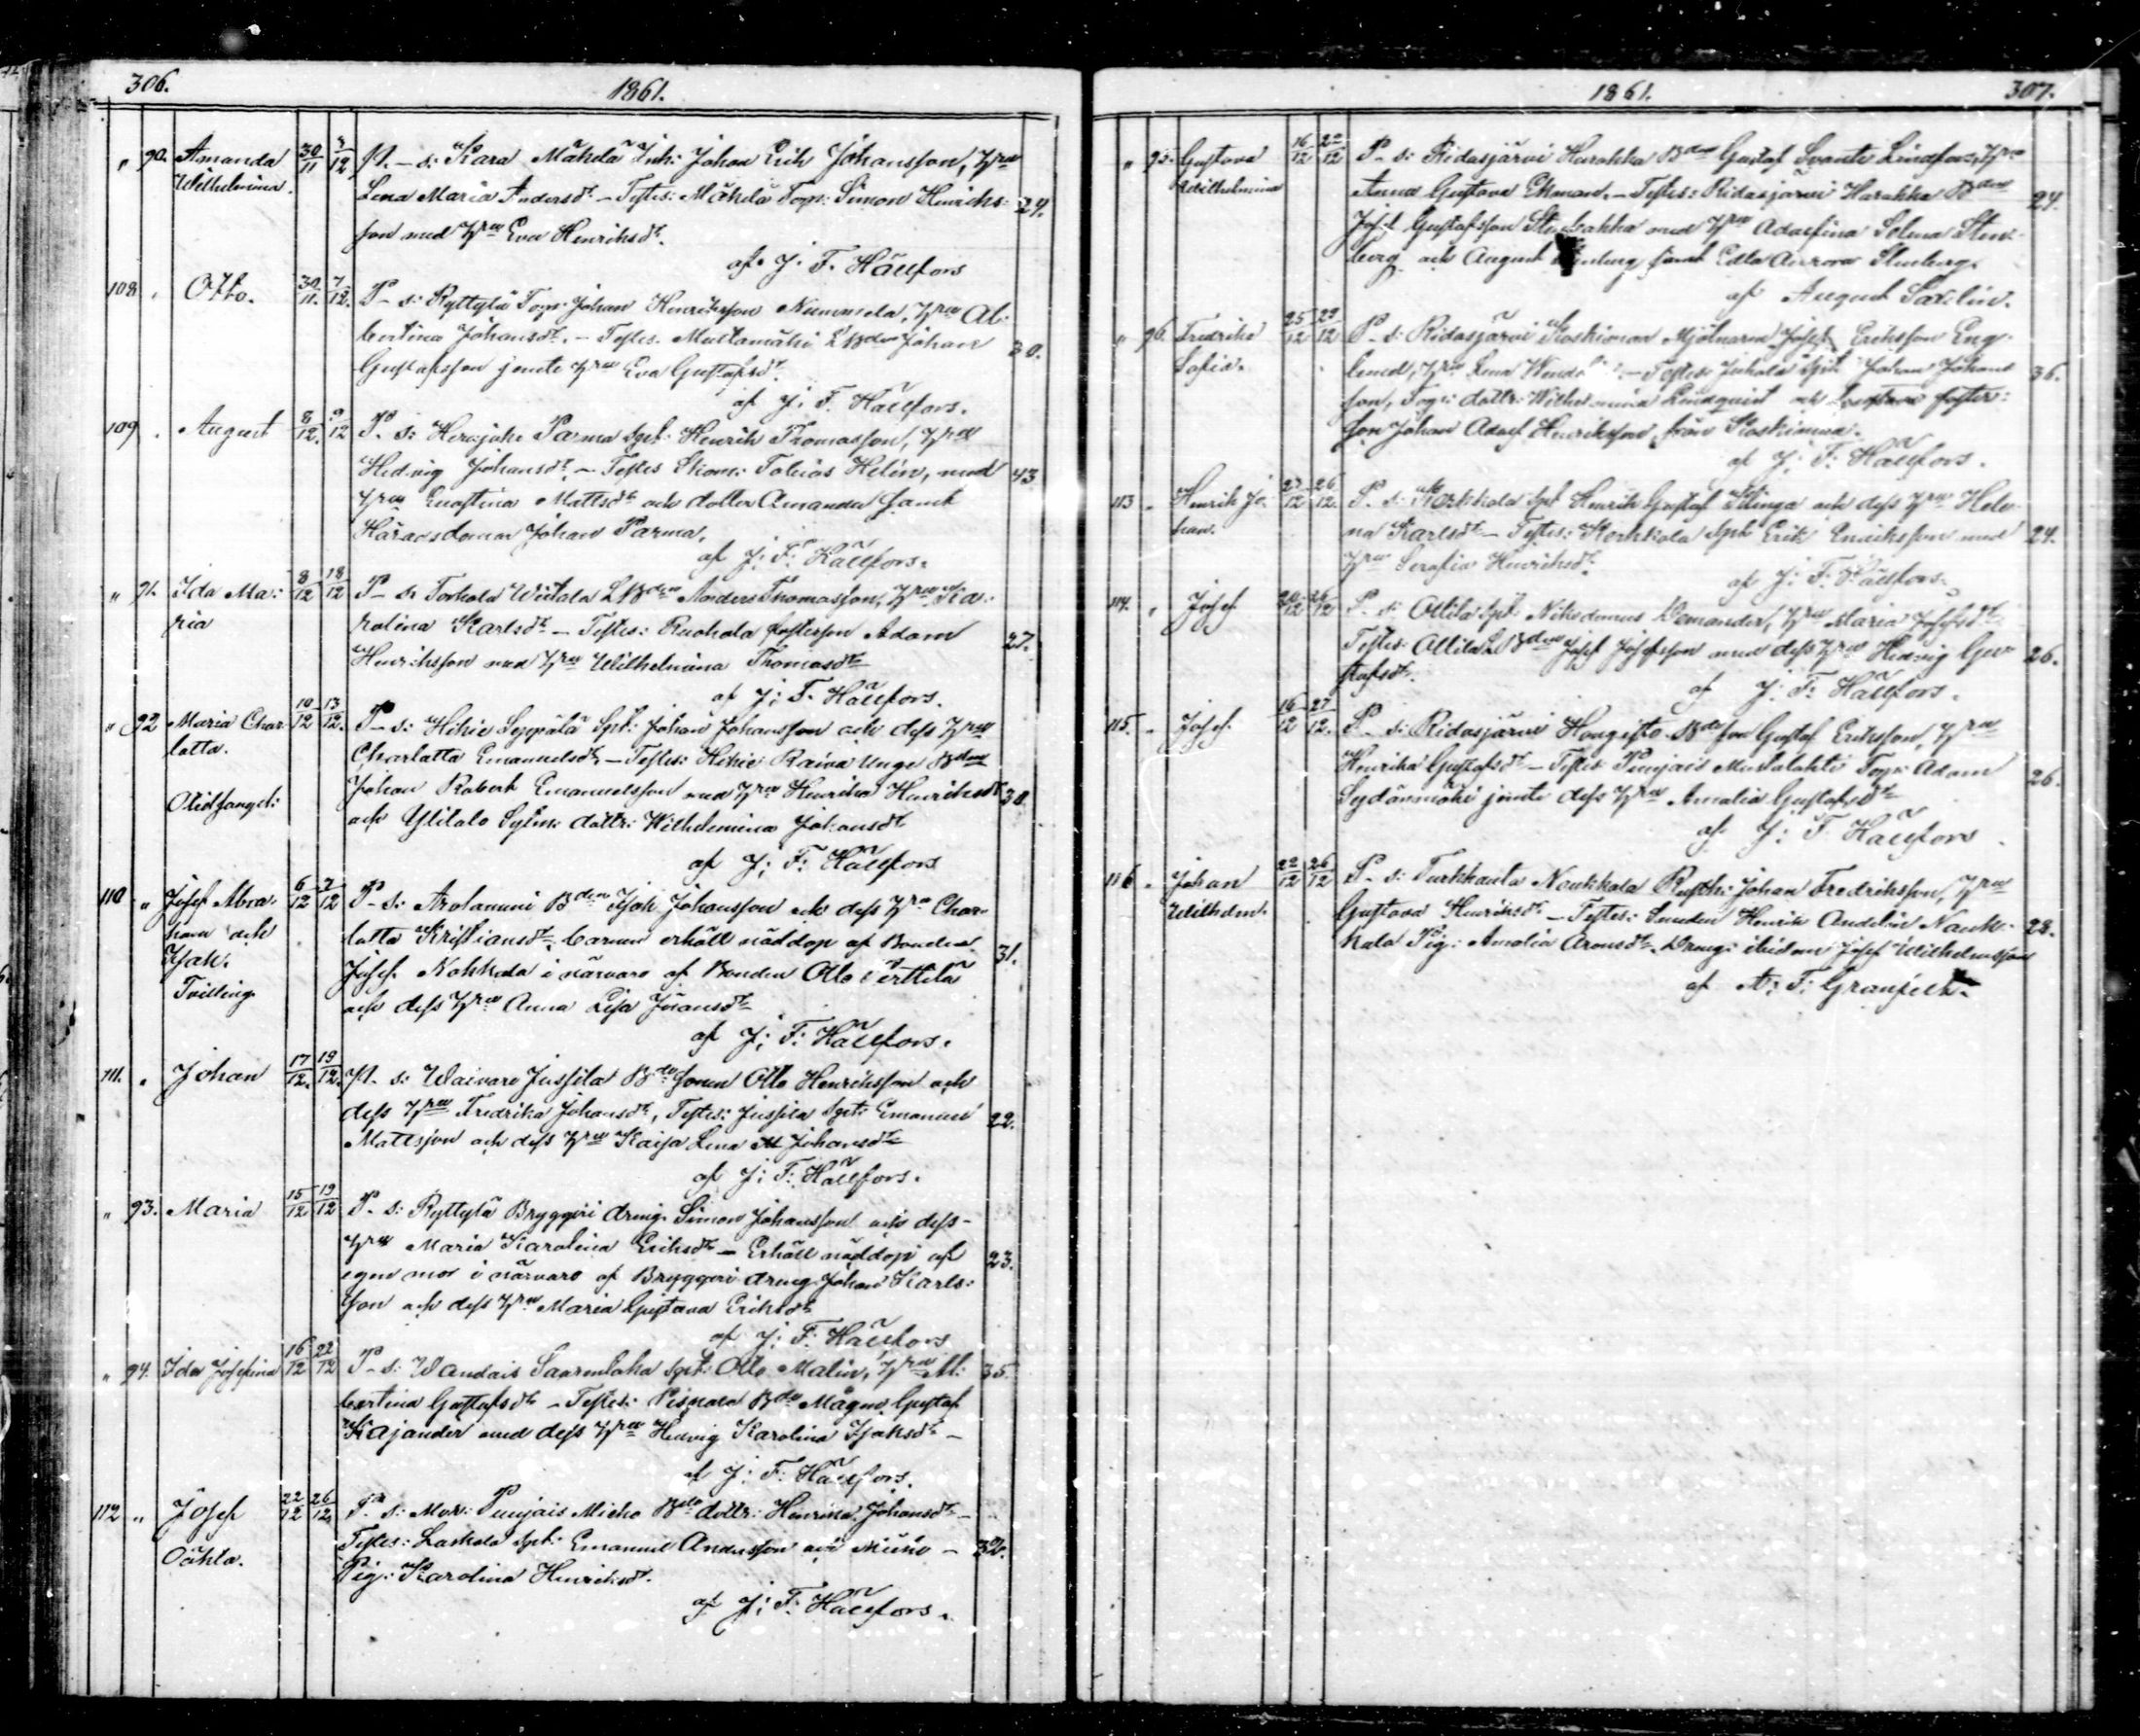 306. 1861.
„ 90. Amanda Wilhelmina. 30/11 3/12 P. s: Kara Mäkelä Inh: Johan Erik Johansson, Hru
Lena Maria Andersdt. – Testes: Mäkelä Torp: Simon Henriks- 24.
son med Hru Eva Henriksdt.
af J. F. Hällfors
108 „ Otto. 30/11. 7/12. P. s: Ryttylä Torp: Johan Henriksson Nummela, Hru Al-
bertina Johansdt. – Testes. Mustamäki LBden Johan 30.
Gustafsson jemte Hru Eva Gustafsdt.
af J: F. Hällfors.
109 „ August 8/12. 9/12 P. s: Herajoki Parma Spt: Henrik Thomasson, Hru
Hedvig Johansdt. – Testes Skom: Tobias Helin, med 43
Hru Mattsdt och dotter Amanda samt
Häradsdomar Johan Parma.
af J: F: Hällfors.
„ 91. Ida Ma: ria 8/12 18/12 P. s: Torhola LBden Anders Thomasson, Hru Ka-
rolina Karlsdt – Testes: Ruohala fosterson Adam 27.
Henriksson med Hru Wilhelmina Thomasdt
af J: F. Hällfors.
„ 92 Maria Char- lotta. 10/12 13/12. P. s: Hikie Seppälä Spt: Johan Johansson och dess Hru
Charlotta Emanuelsdt – Testes: Hikie Raiva Unge Bden
Johan Robert Emanuelsson med Hru Henrika Henriksdt 38.
och Ylitalo dottr: Wilhelmina Johansdt
af J; F: Hällfors
110 „ Josef Abra- ham och Isak. Tvilling. 6/12 7/12 P. s: Arolammi Bden Isak Johansson och dess Hru Char-
lotta Kristiansdt, barnen erhöll nöddop af Bonden 31.
Josef Nokkala i närvaro af Bonden Otto Perttilä
och dess Hru Anna Lisa
af J; F: Hällfors.
111. „ Johan 17/12. 19/12. P. s: Waivare Jussila Bdesonen Otto Henriksson och
dess Hru Fredrika Johansdt, Testes: Jussila Spt: Emanuel 22.
Mattsson och dess Hru Kaisa Lena Johansdt
af J: F: Hällfors.
„ 93. Maria 15/12 19/12 P. s: Ryttylä Bryggeri dreng. Simon Johansson och dess-
Hru Maria Karolina Eriksdt – Erhöll nöddop af 23.
egen mor i närvaro af Bryggeri dreng Johan Karls-
son och dess Hru Maria Gustava Eriksdt
af J: F: Hällfors
„ 94. Ida Josefina 16/12 22/12 P. s: Wandais Spt: Otto Malin, Hru Al: 35.
bertina Gustafsdt – Testes: Bde Mågen Gustaf
Kajander med dess Hru Hedvig Karolina Isaksdt –
af J: F: Hällfors.
112 „ Josef Oäkta. 22/12 26/12 P. s: Mor: Punjais Micko Bde dottr: Henrika Johansdt –
Testes: Laskala Spt: Emanuel Andersson och – 32.
Pig: Karolina Henriksdt.
af J; F: Hällfors.
1861. 307.
„ 95. Gustava Wilhelmina 16/12 22/12 P. s: Ridasjärvi Harakka Bden Gustaf Svante Lindfors, Hru
Anna Gustava Ekman. – Testes: Ridasjärvi Harakka Bden 24.
Josef Gustafsson med Hru Adolfina Selma Sten-
berg och August Stenberg samt Edla Aurora Stenberg.
af August Saxelin.
„ 96. Fredrika Sofia. 25/12 29/12 P. s: Ridasjärvi Koskimoa Mjölnaren Josef Eriksson Eng-
lund, Hru Lena – Testes Spt: Johan Johans 36.
son, Torp: dottr: Wilhelmina Lindquist och foster-
son Johan Adolf Henriksson från Koskimoa.
af J: F: Hällfors.
113 „ Henrik Jo- han. 23/12 26/12. P. s: Korkkola Spt Henrik Gustaf och dess Hru Hele-
na Karlsdt – Testes: Korkkola Spt Erik Eriksson med 24.
Hru Serafia Henriksdt.
af J: F: Hällfors.
114. „ Josef 20/12 26/12 P. s: Ollila Spt: Nikodemus Demander, Hru Maria Josefsdt
Testes: Ollila LBden Josef Josefsson med dess Hru Hedvig Gu- 26.
stafsdt.
af J: F: Hällfors.
115. „ Josef. 16/12 27/12. P. s: Ridasjärvi Hongisto Bdeson Gustaf Eriksson, Hru
Henrika Gustafsdt – Testes Punjais Mustalahti Torp: Adam 26.
Sydänmäki jemte dess Hru Amalia Gustafsdt
af J: F: Hällfors
116 „ Johan Wilhelm. 22/12 26/12 P. s: Turkhauta Noukkala Rusth: Johan Fredriksson, Hru
Gustava Henriksdt – Testes: Henrik Andelin Nouk- 28.
kala Pig: Amalia Aronsdt. Dreng: Josef Wilhelmsson
af A: F: Granfelt.